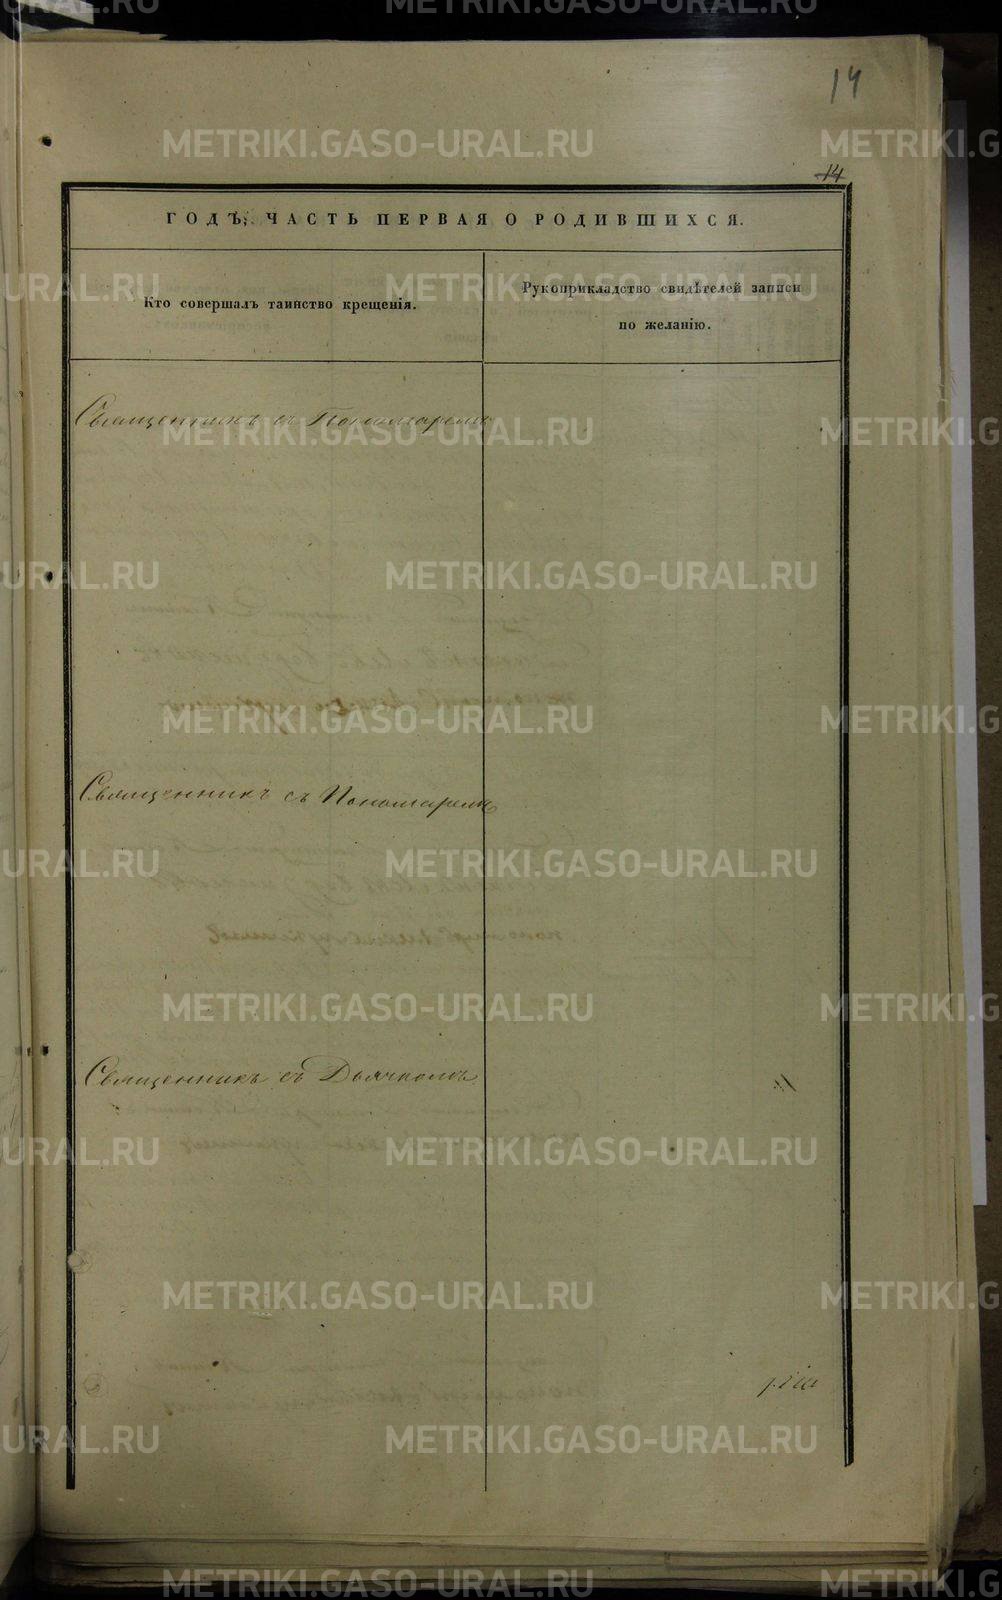 14
14
ГОДЪ, ЧАСТЬ ПЕРВАЯ О РОДИВШИХСЯ.
Кто совершалъ таинство крещенія.
Рукоприкладство свидѣтелей записи
по желанію.
Священникъ съ Пономаремъ
Священникъ съ Пономаремъ
Священникъ съ Дьячкомъ
METRIKI.GASO-URAL.RU